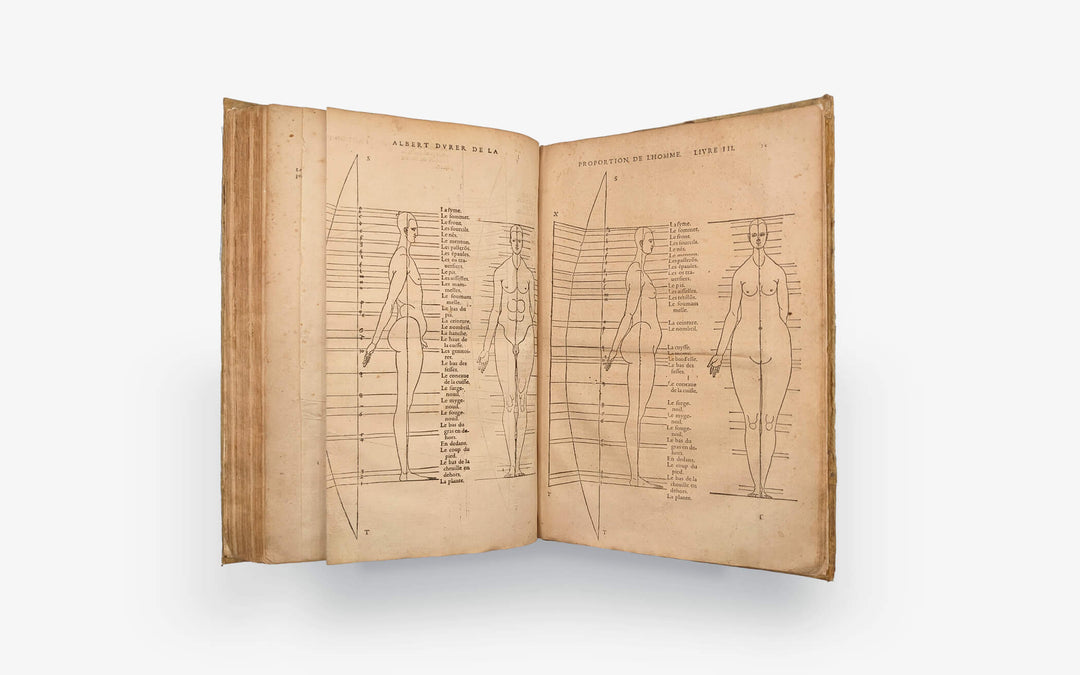 ALBERT DVRER DE LA
S
La syme.
Le sommet.
Le front.
Les sourcils.
Le nés.
Le mentun.
Les palserōs.
Les épaules.
Les os tra-
uersiers.
Le pis.
Les aisselles.
Les mam-
melles.
Le soumam
melle.
Le bas du
pis.
La ceinture.
Le nombril.
La hanche.
Le haut de
la cuisse.
Les
Le bas des
fesses.
Le concaue
de la cuisse.
Le surge-
nouil.
Le myge-
nouil.
Le souge-
nouil.
Le bas du
gras en de-
hors.
En dedans.
Le coup du
pied.
Le bas de la
cheuille en
dehors.
La plante.
T
PROPORTION DE L'HOMME. LIVRE III.
S
X
La syme.
Le sommet.
Le front.
Les sourcils.
Le nés.
Le mentun.
Les palserōs.
Les épaules.
Les os tra-
uersiers.
Le pis.
Les aisselles.
Les tétills.
Le soumam
melle.
La ceinture.
Le nombril.
La cuysse.
Le bas des
fesses.
Le concaue
de la cuisse.
Le surge-
noil.
Le myge-
nouil.
Le souge-
nouil.
Le bas du
gras en de-
hors.
En dedans.
Le coup du
pied.
Le bas de la
cheuille en
dehors.
La plante.
Y
T